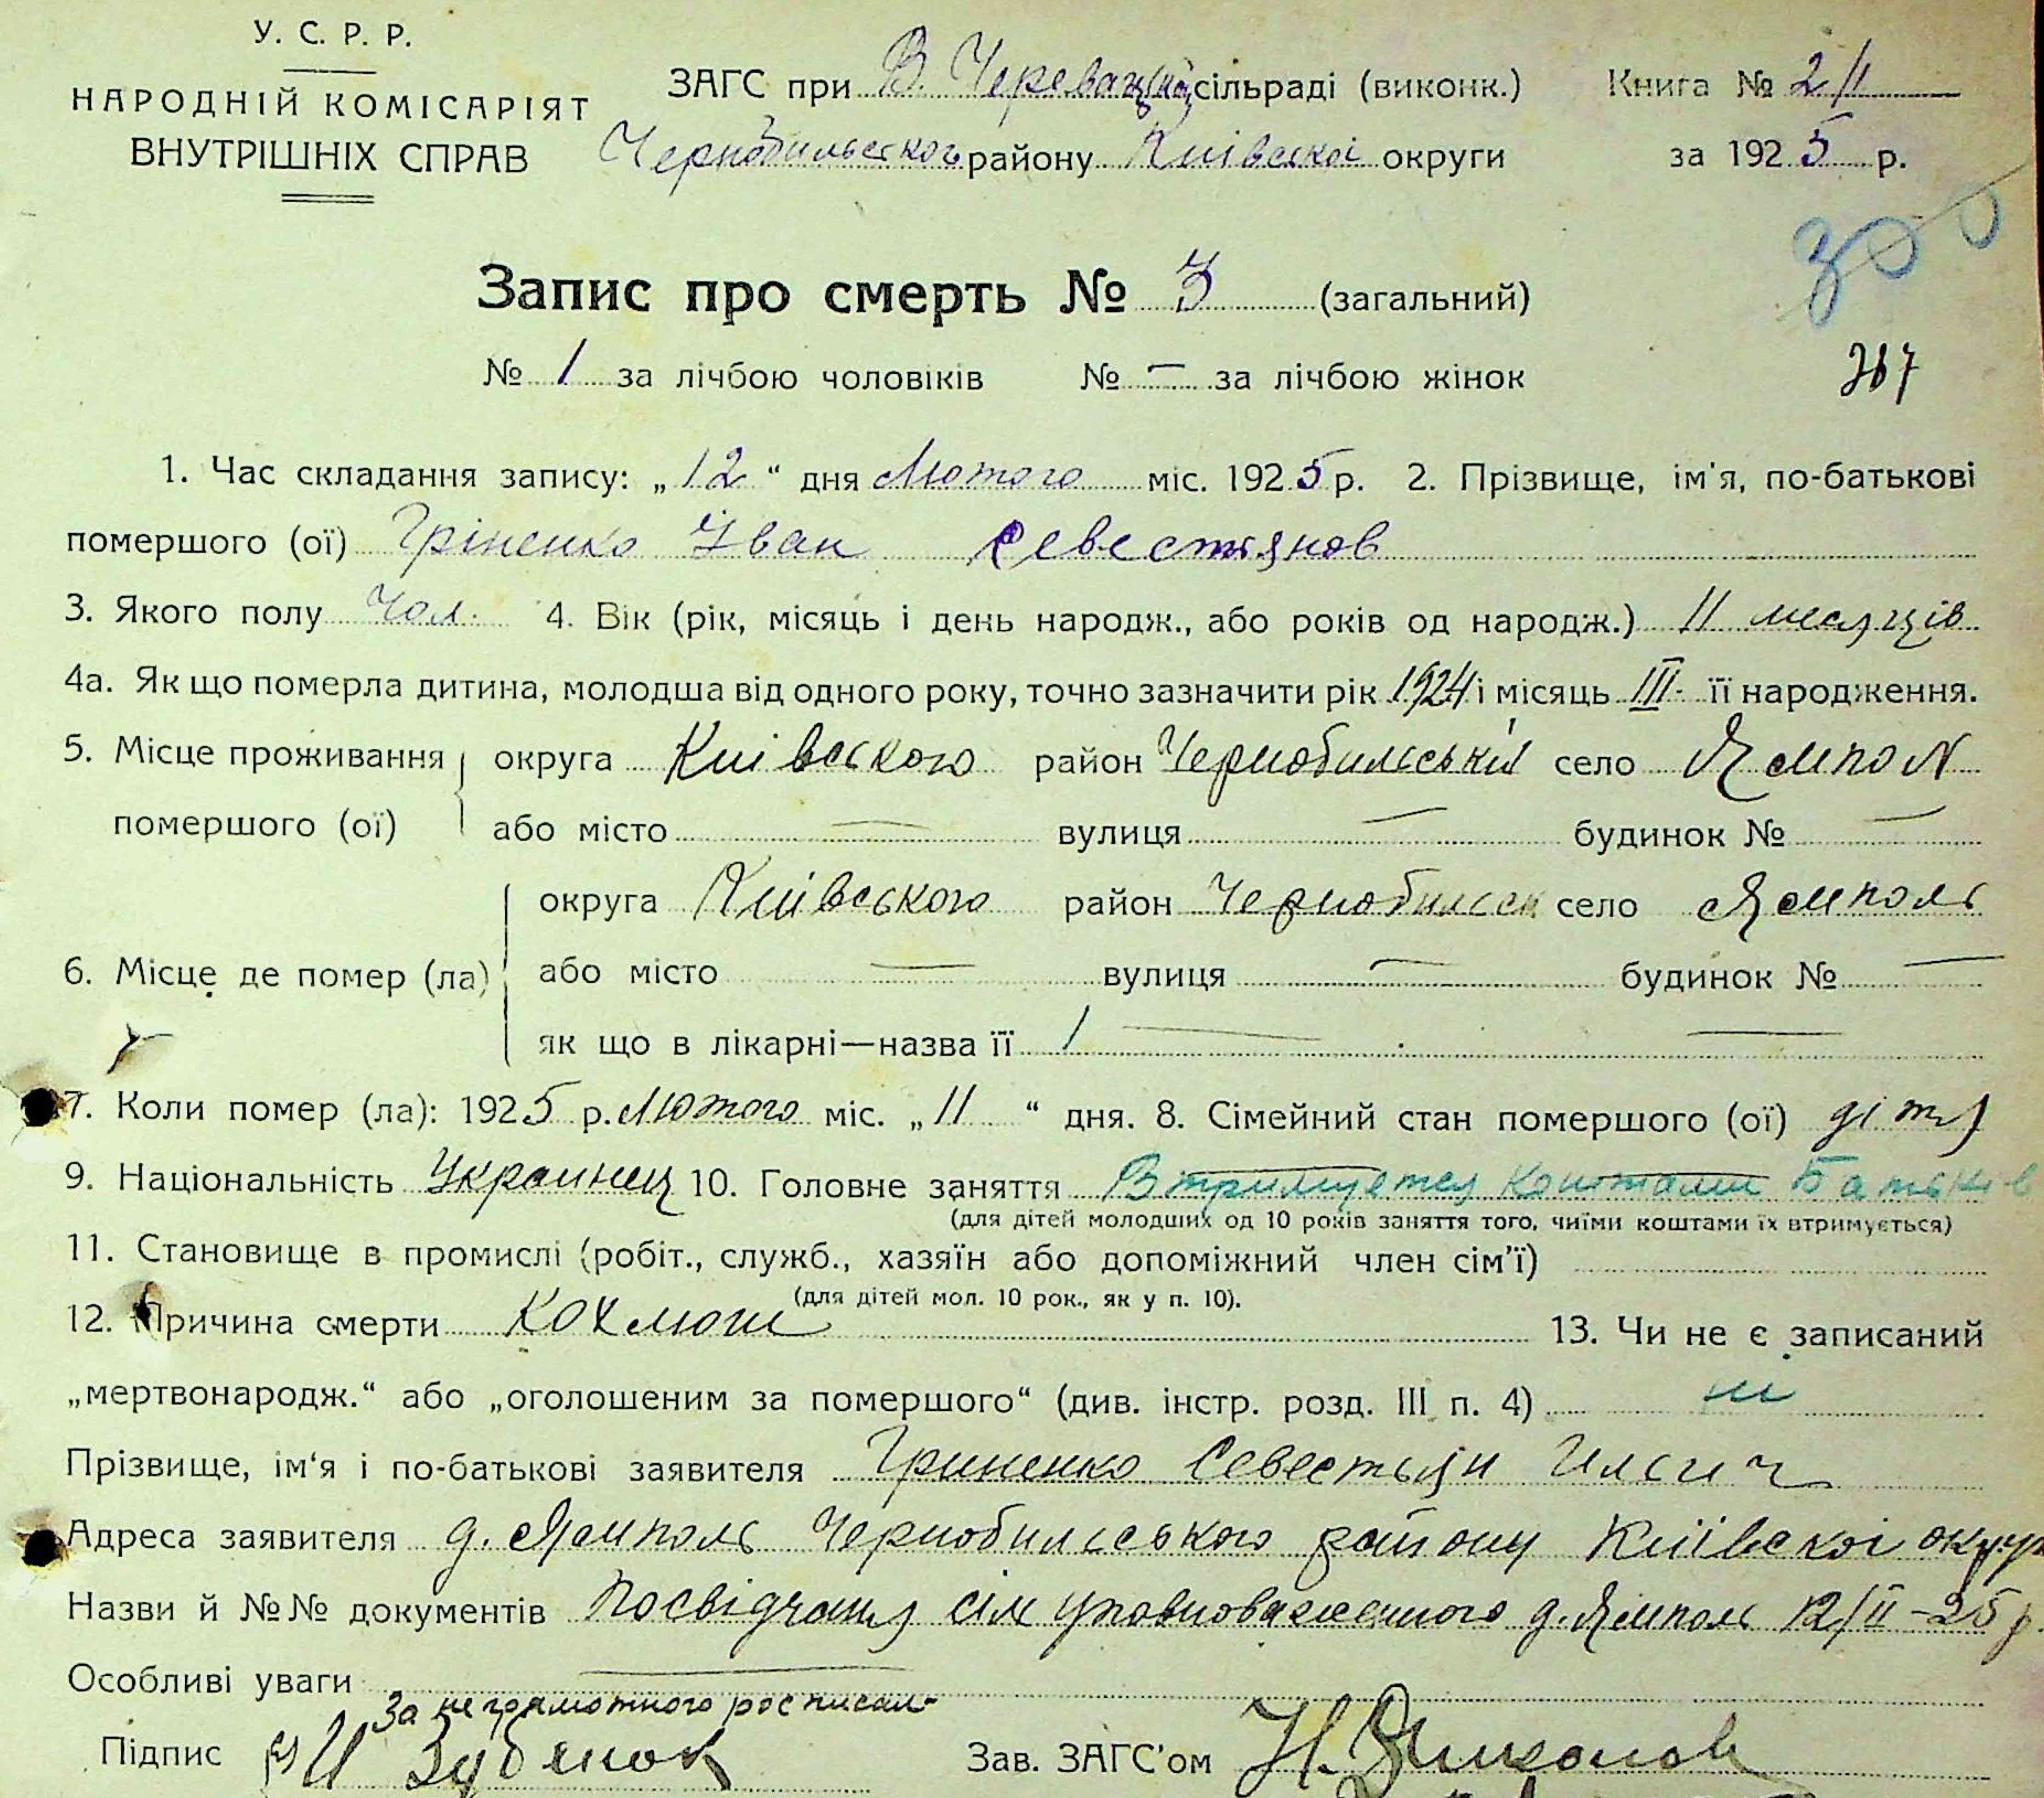 У. С. Р. Р.
НАРОДНІЙ КОМІСАРІЯТ
ВНУТРІШНІХ СПРАВ
ЗАГС при В. Черевацькій сільраді (виконк.)
Чернобильського району Київскої округи
Книга № 2/II
за 1925 р.
Запис про смерть № 3 (загальний)
№ 1 за лічбою чоловіків № — за лічбою жінок
1. Час складання запису: „12“ дня Лютого міс. 1925 р. 2. Прізвище, ім'я, по-батькові
помершого (ої) Гріненко Іван Севестянов
3. Якого полу Чол. 4. Вік (рік, місяць і день народж., або років од народж.) 11 месяців
4а. Як що померла дитина, молодша від одного року, точно зазначити рік 1924 і місяць III. її народження.
5. Місце проживання округа Київського район Чернобильський село Ямпол
помершого (ої) або місто — вулиця — будинок № —
округа Київського район Чернобильськ село Ямполь
6. Місце де помер (ла) або місто — вулиця — будинок № —
як що в лікарні—назва її —
7. Коли помер (ла): 1925 р. Лютого міс. „11“ дня. 8. Сімейний стан помершого (ої) дітя
9. Національність Украинец 10. Головне заняття Втримуется Коштами Батьків
(для дітей молодших од 10 років заняття того, чиїми коштами їх втримується)
11. Становище в промислі (робіт., служб., хазяїн або допоміжний член сім'ї)
(для дітей мол. 10 рок., як у п. 10).
12. Причина смерти Кохлюш 13. Чи не є записаний
„мертвонародж.“ або „оголошеним за помершого“ (див. інстр. розд. III п. 4) ні
Прізвище, ім'я і по-батькові заявителя Гриненко Севестьян Ильич
Адреса заявителя д. Ямполь Чернобильського району Київскої округ
Назви й №№ документів Посвідчання сіл уповноваженного д. Ямполь 12/II-25 р.
Особливі уваги —
За неграмотного росписал
Підпис И Зубенок Зав. ЗАГС'ом